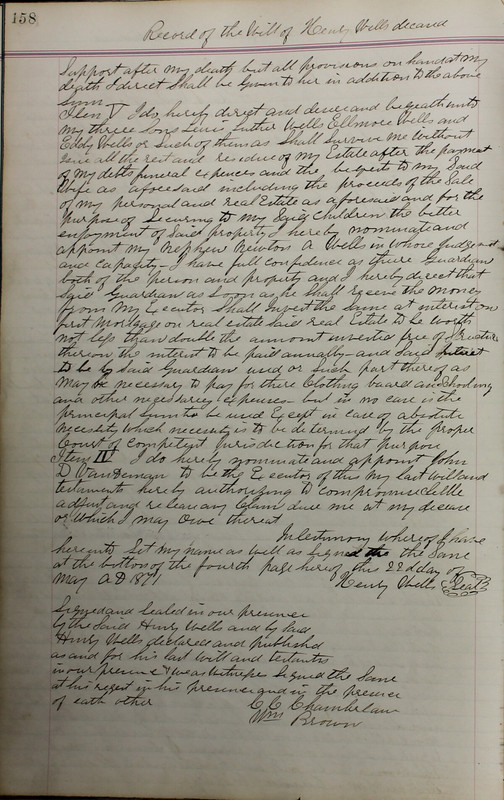 158
Record of the Will of Henry Wells decasd
Support after my death but all provisions on hand at my
death I direct Shall be given to her in addition to the above
Sum
Item V I do hereby direct and devise and begeath unto
my three sons Lewis Luther Wells Ellmore Wells and
Eddy Wells or such of them as Shall Survive me without
all the rest and residue of my Estate after the payment
of my debts funeral expences and the beqests to my Said
Wife as aforesaid including the proceeds of the Sale
of my personal and real Estate as aforesaid and for the
purpose of Securing to my Said Children the better
enjoyment of Said property I hereby nominate and
appoint my Nephew Newton A Wells in whose judgement
and Capacity I have full Confidence as there Guardian
both of the person and property and I hereby direct that
Said Guardian as Soon as he Shall receive the money
from my Executor Shall Invest the Same at interest on
first Mortgage on real estate Said real Estate to be worth
not less than double the amount invested free of Structure
thereon the interest to be paid annually and Said Intrest
to be by Said Guardian used or Such part thereof as
may be necessary to pay for there Clothing board and Schooling
and other negessarry expenses but in no case is the
principal Sum to be used Except in case of absolute
necessity which necessity is to be determined by the proper
Court of Competent jurisdiction for that purpose
Item IV I do hereby nominate and appoint John
D VanDeman to be the Executor of this my last will and
testament hereby authorizing to compromise Settle
adjust and release any Claim due me at my decease
or which I may owe thereat
In testimony whereof I have
hereunto Set my name as well as Signed the the Same
at the bottom of the fourth page hereof this 22d day of
May AD 1871 Henry Wells Seal
Signed and Sealed in our presence
by the Said Henry Wells and by Said
Henry Wells declared and published
as and for his last will and testament
in our presence & we as witnesses Signed the Same
at his reqest in his presence and in the presence
of each other C. C. Chamberlain
Wm Brown